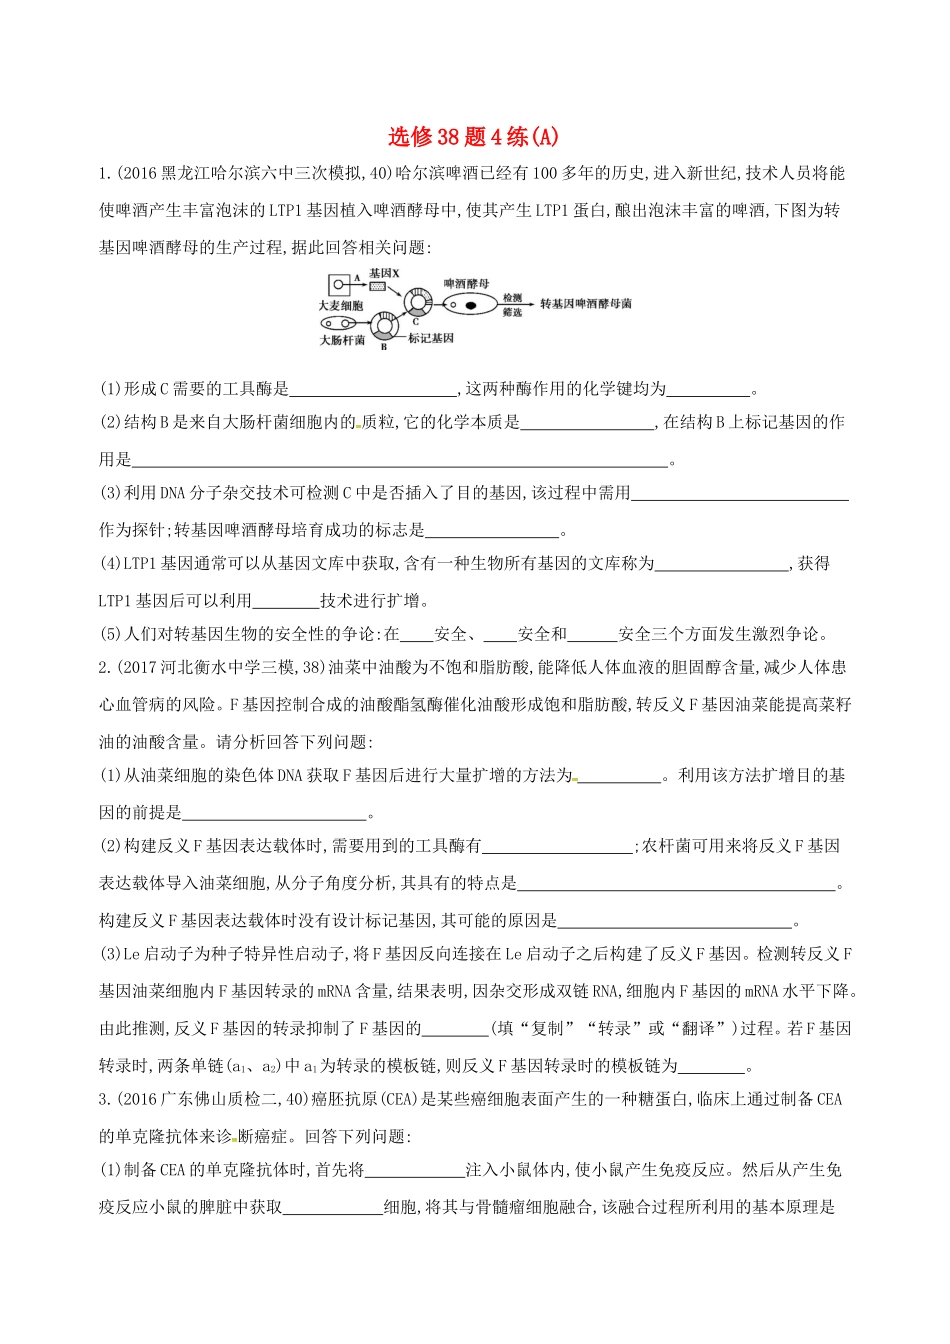 选修38题4练(A)
1.(2016黑龙江哈尔滨六中三次模拟,40)哈尔滨啤酒已经有100多年的历史,进入新世纪,技术人员将能
使啤酒产生丰富泡沫的LTP1基因植入啤酒酵母中,使其产生LTP1蛋白,酿出泡沫丰富的啤酒,下图为转
基因啤酒酵母的生产过程,据此回答相关问题:
A 基因X 啤酒酵母
大麦细胞 C 检测 筛选 转基因啤酒酵母菌
大肠杆菌 B 标记基因
(1)形成C需要的工具酶是____________________,这两种酶作用的化学键均为__________。
(2)结构B是来自大肠杆菌细胞内的质粒,它的化学本质是________________,在结构B上标记基因的作
用是________________________________________________________________。
(3)利用DNA分子杂交技术可检测C中是否插入了目的基因,该过程中需用__________________________
作为探针;转基因啤酒酵母培育成功的标志是________________。
(4)LTP1基因通常可以从基因文库中获取,含有一种生物所有基因的文库称为________________,获得
LTP1基因后可以利用________技术进行扩增。
(5)人们对转基因生物的安全性的争论:在____安全、____安全和______安全三个方面发生激烈争论。
2.(2017河北衡水中学三模,38)油菜中油酸为不饱和脂肪酸,能降低人体血液的胆固醇含量,减少人体患
心血管病的风险。F基因控制合成的油酸酯氢酶催化油酸形成饱和脂肪酸,转反义F基因油菜能提高菜籽
油的油酸含量。请分析回答下列问题:
(1)从油菜细胞的染色体DNA获取F基因后进行大量扩增的方法为__________。利用该方法扩增目的基
因的前提是______________________。
(2)构建反义F基因表达载体时,需要用到的工具酶有__________________;农杆菌可用来将反义F基因
表达载体导入油菜细胞,从分子角度分析,其具有的特点是______________________________________。
构建反义F基因表达载体时没有设计标记基因,其可能的原因是____________________________。
(3)Le启动子为种子特异性启动子,将F基因反向连接在Le启动子之后构建了反义F基因。检测转反义F
基因油菜细胞内F基因转录的mRNA含量,结果表明,因杂交形成双链RNA,细胞内F基因的mRNA水平下降。
由此推测,反义F基因的转录抑制了F基因的________(填“复制”“转录”或“翻译”)过程。若F基因
转录时,两条单链(a₁、a₂)中a₁为转录的模板链,则反义F基因转录时的模板链为________。
3.(2016广东佛山质检二,40)癌胚抗原(CEA)是某些癌细胞表面产生的一种糖蛋白,临床上通过制备CEA
的单克隆抗体来诊断癌症。回答下列问题:
(1)制备CEA的单克隆抗体时,首先将____________注入小鼠体内,使小鼠产生免疫反应。然后从产生免
疫反应小鼠的脾脏中获取____________细胞,将其与骨髓瘤细胞融合,该融合过程所利用的基本原理是